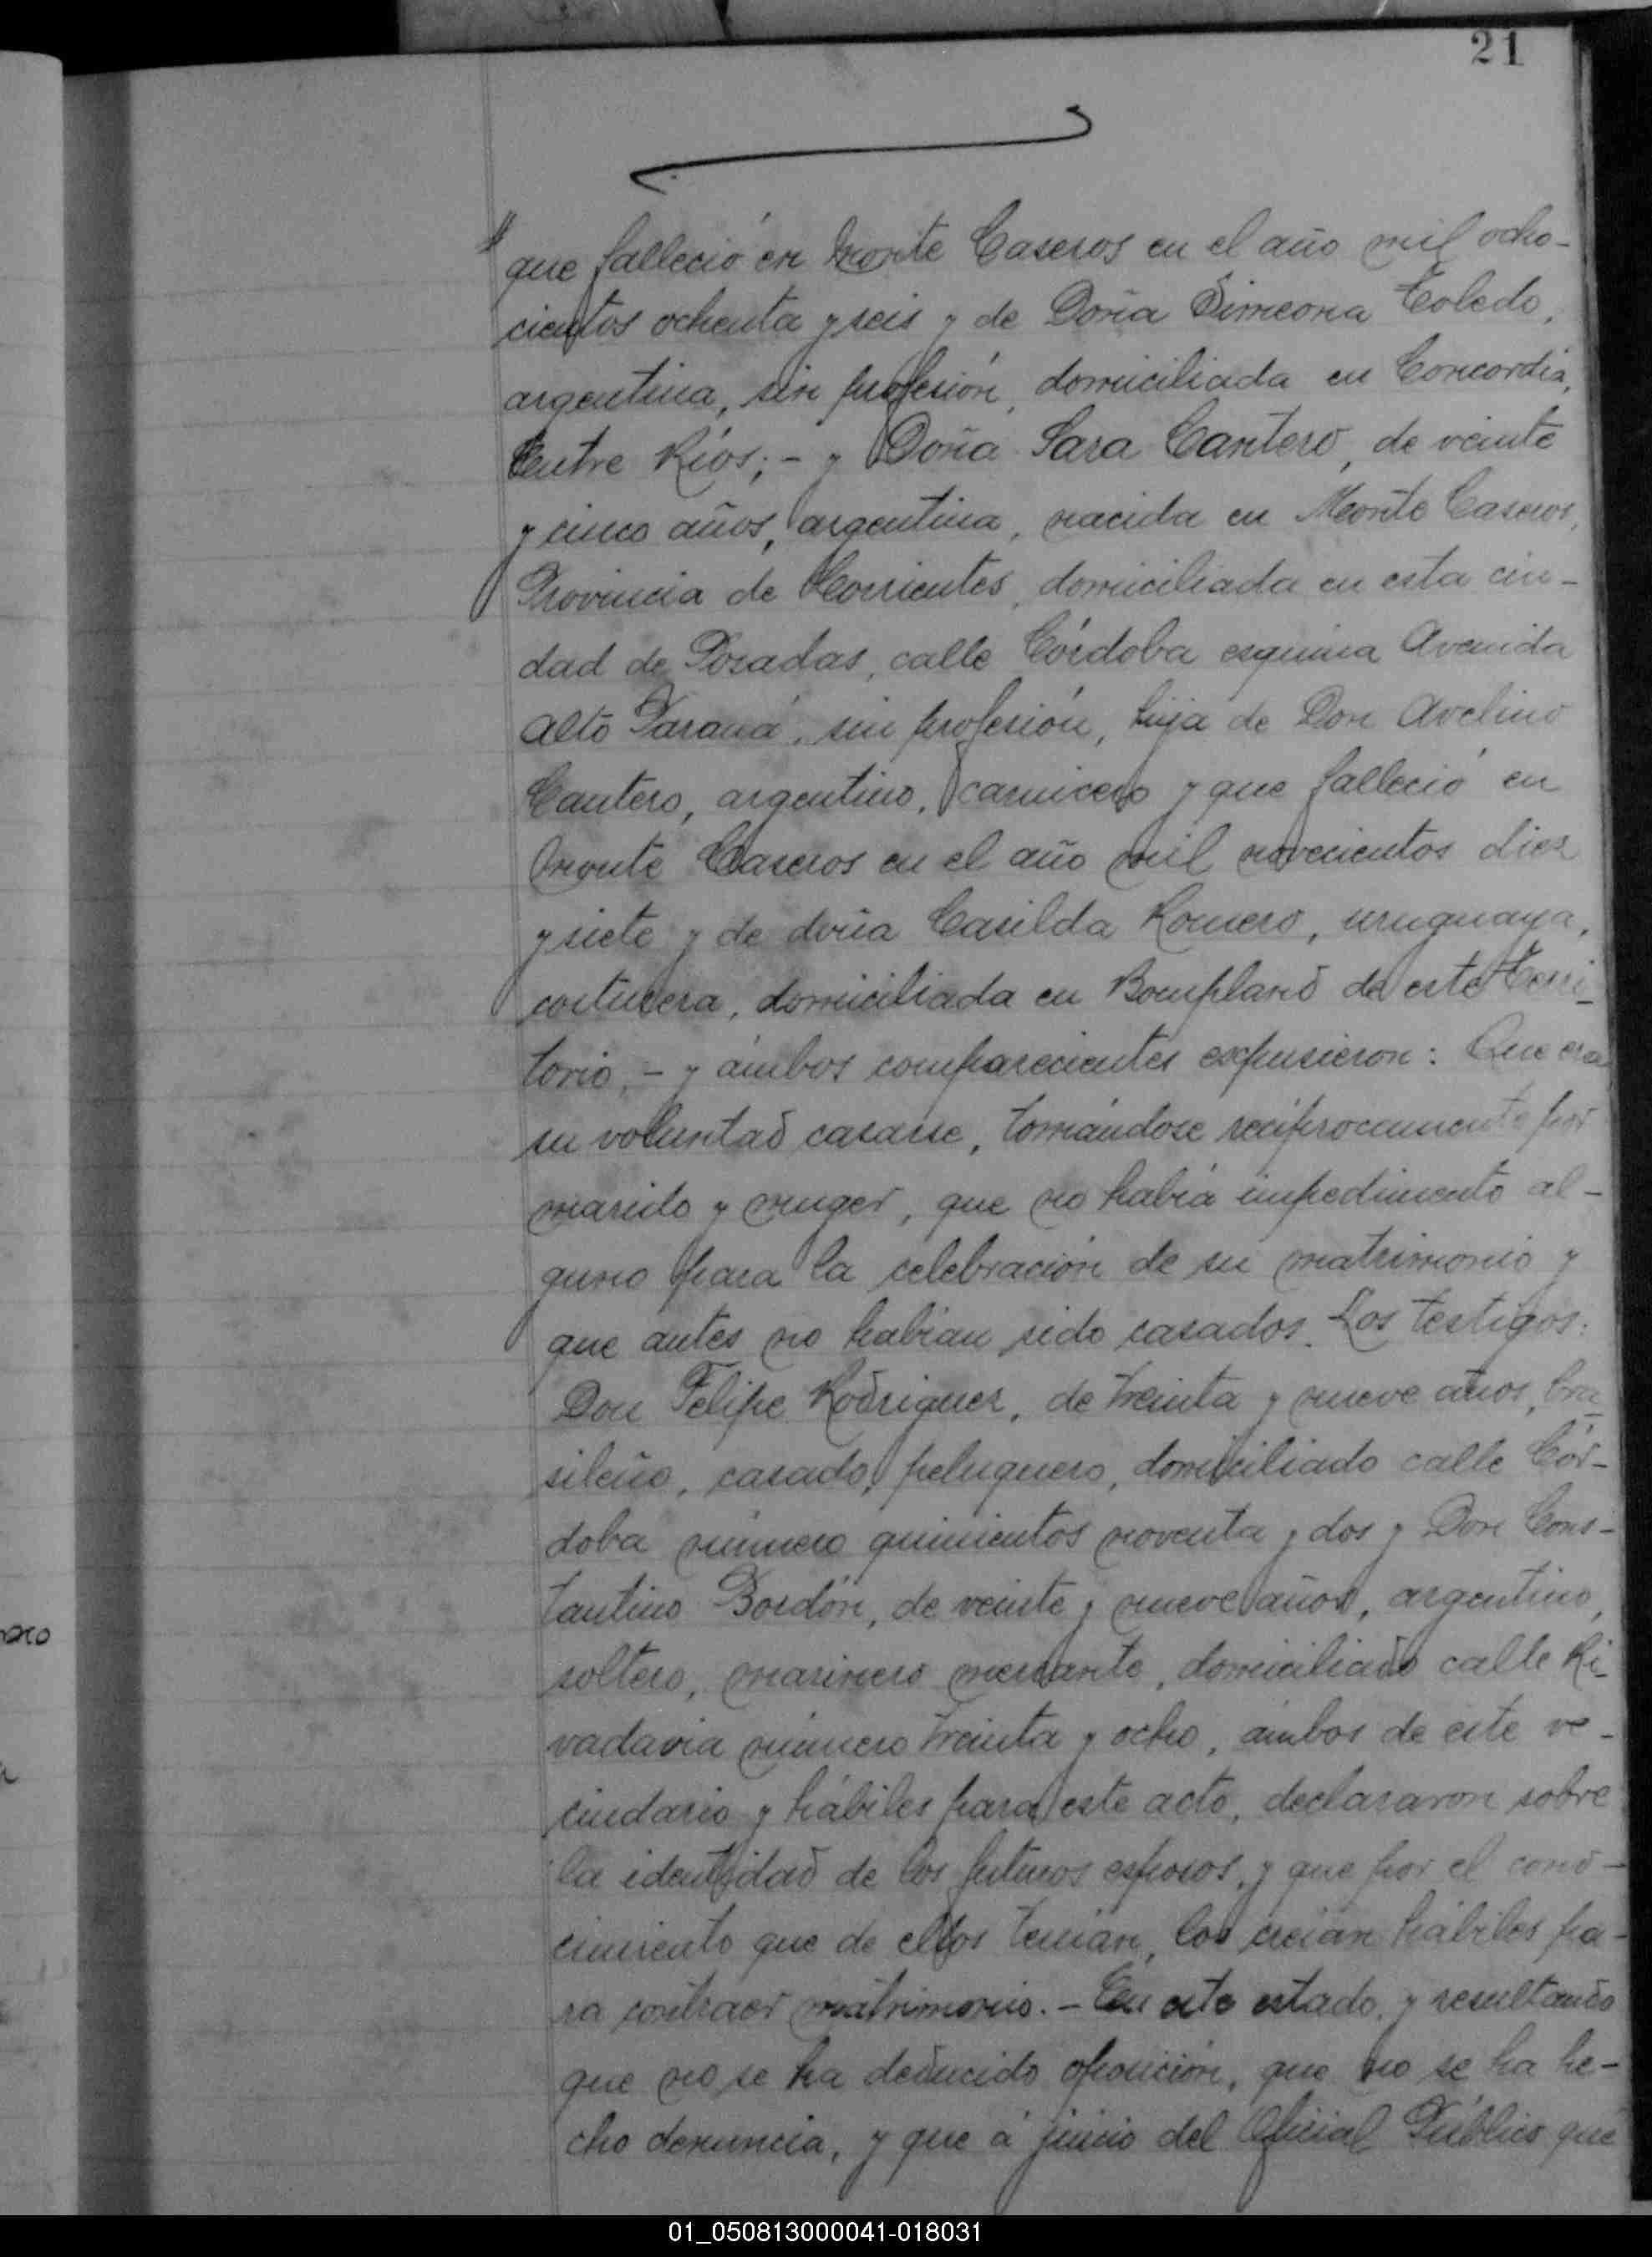 21
que falleció en Monte Caseros en el año mil ocho-
cientos ochenta y seis y de Doña Simeona Toledo,
argentina, sin profesión, domiciliada en Concordia,
Entre Ríos; - y Doña Sara Cantero, de veinte
y cinco años, argentina, nacida en Monte Caseros,
Provincia de Corrientes, domiciliada en esta ciu-
dad de Posadas, calle Córdoba esquina Avenida
Alto Paraná, sin profesión, hija de Don Avelino
Cantero, argentino, carnicero y que falleció en
Monte Caseros en el año mil novecientos diez
y siete y de doña Casilda Romero, uruguaya,
costurera, domiciliada en Bompland de este Terri-
torio, - y ámbos comparecientes expusieron: Que era
su voluntad casarse, tomándose recíprocamente por
marido y muger, que no había impedimento al-
guno para la celebración de su matrimonio y
que antes no habían sido casados. Los testigos:
Don Felipe Rodriguez, de treinta y nueve años, bra-
sileño, casado, peluquero, domiciliado calle Cór-
doba número quinientos noventa y dos y Don Cons-
tantino Bordón, de veinte y nueve años, argentino,
soltero, marinero mercante, domiciliado calle Ri-
vadavia número treinta y ocho, ámbos de este ve-
cindario y hábiles para este acto, declararon sobre
la identidad de los futuros esposos, y que por el cono-
cimiento que de ellos tenían, los creían hábiles pa-
ra contraer matrimonio. - En este estado, y resultando
que no se ha deducido oposición, que no se ha he-
cho denuncia, y que á juicio del Oficial Público que
01_050813000041-018031